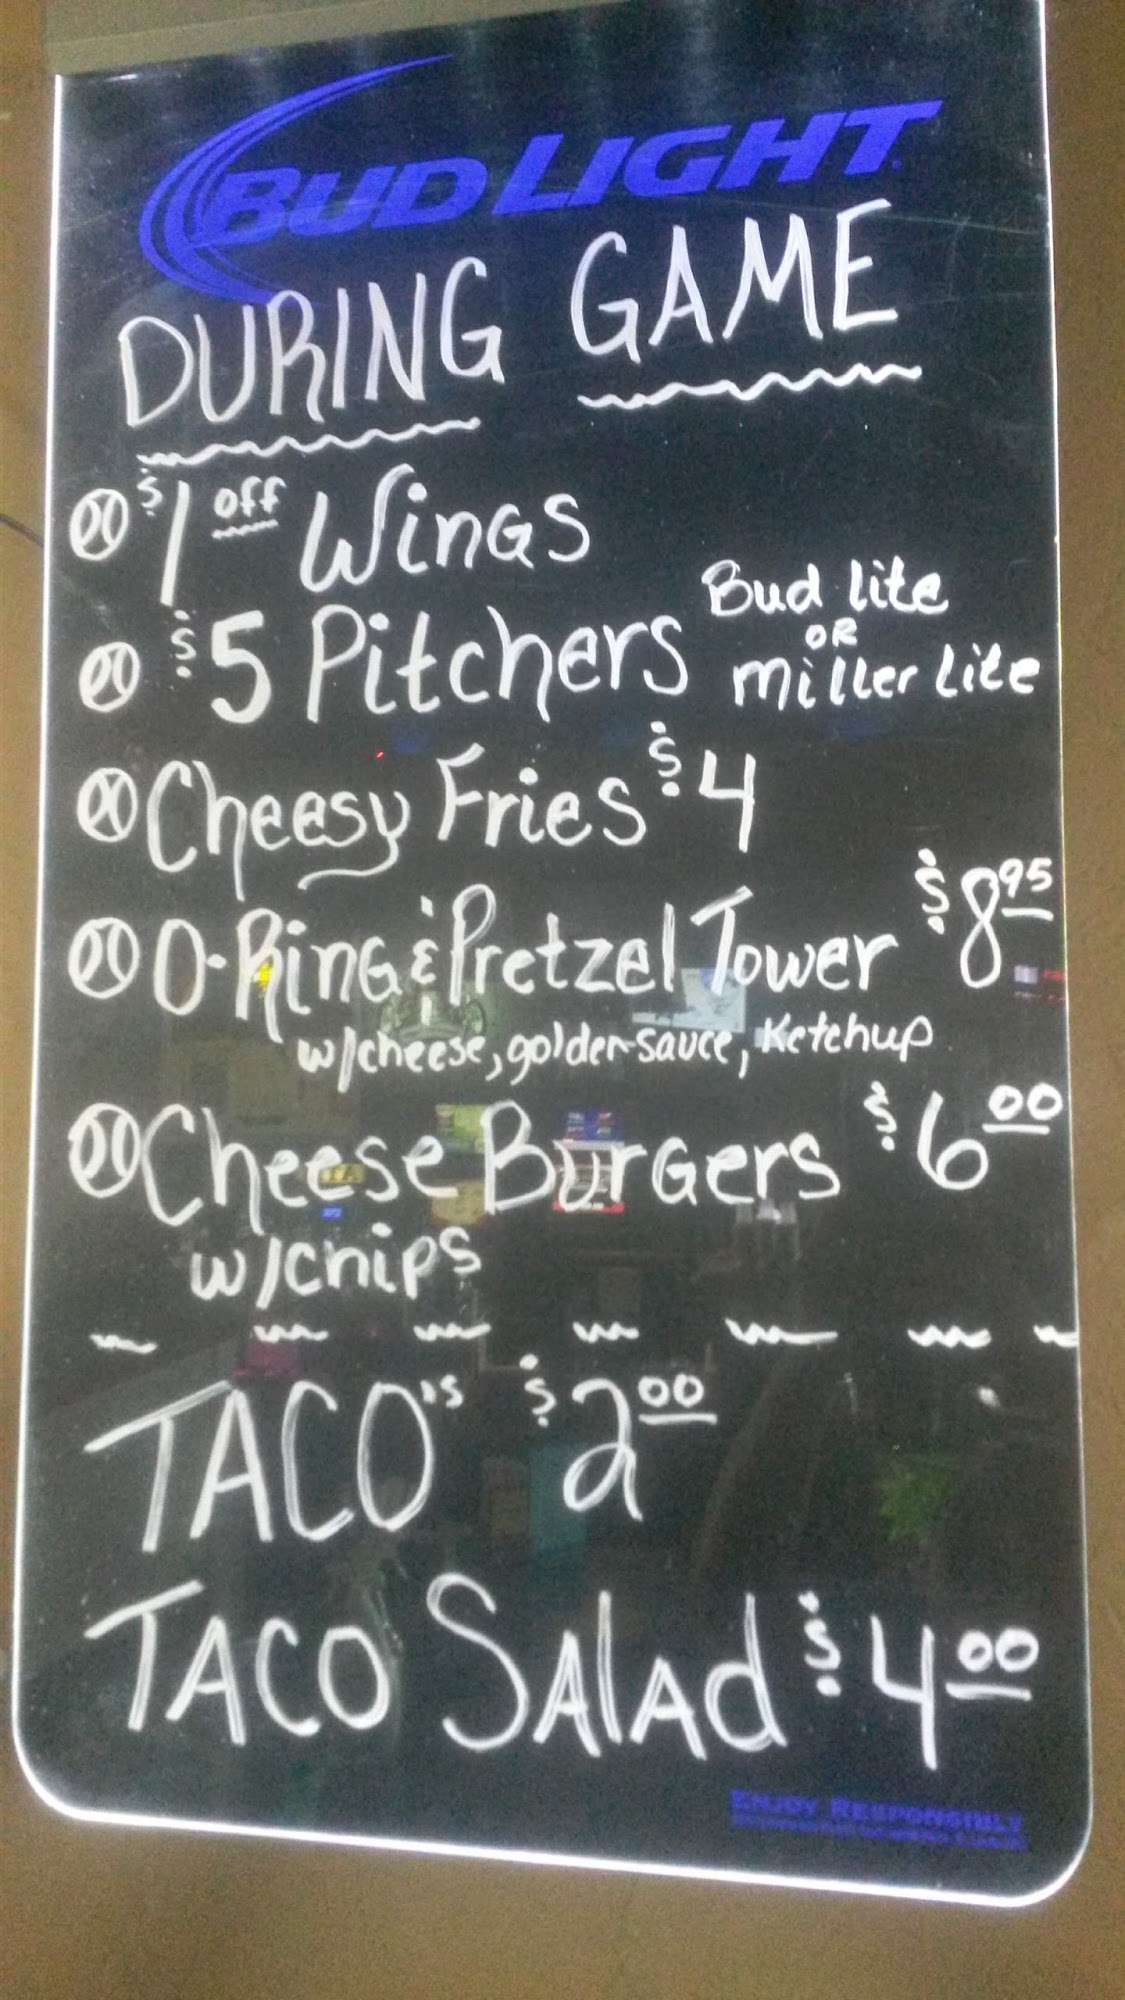 BUD LIGHT
DURING GAME
$1 off Wings
$5 Pitchers Bud lite OR miller lite
Cheesy Fries $4
O-Ring & Pretzel Tower $8 95
w/cheese, golden sauce, Ketchup
Cheese Burgers $6 00
w/chips
TACO's $2 00
TACO Salad $4 00
ENJOY RESPONSIBLY